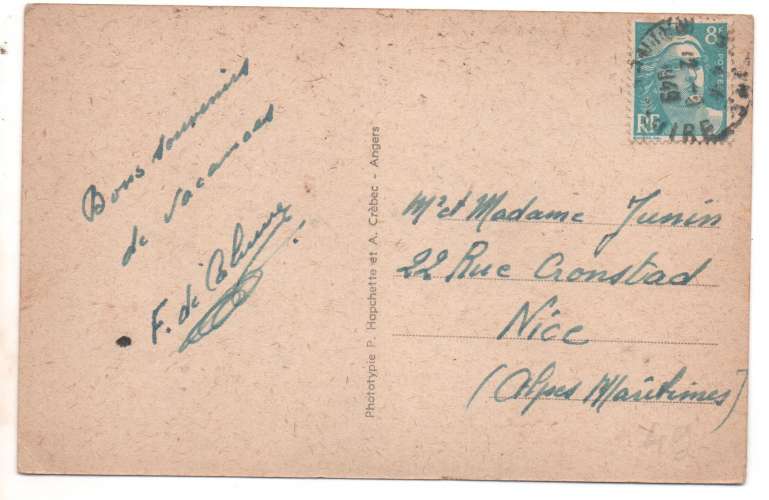 Bons souvenirs
de vacances
F. de
Phototypie P. Hapchette et A. Crèbec - Angers
8F
POSTES
RF
1949
OIRE
Mr et Madame Junin
22 Rue Cronstad
Nice
(Alpes Maritimes)